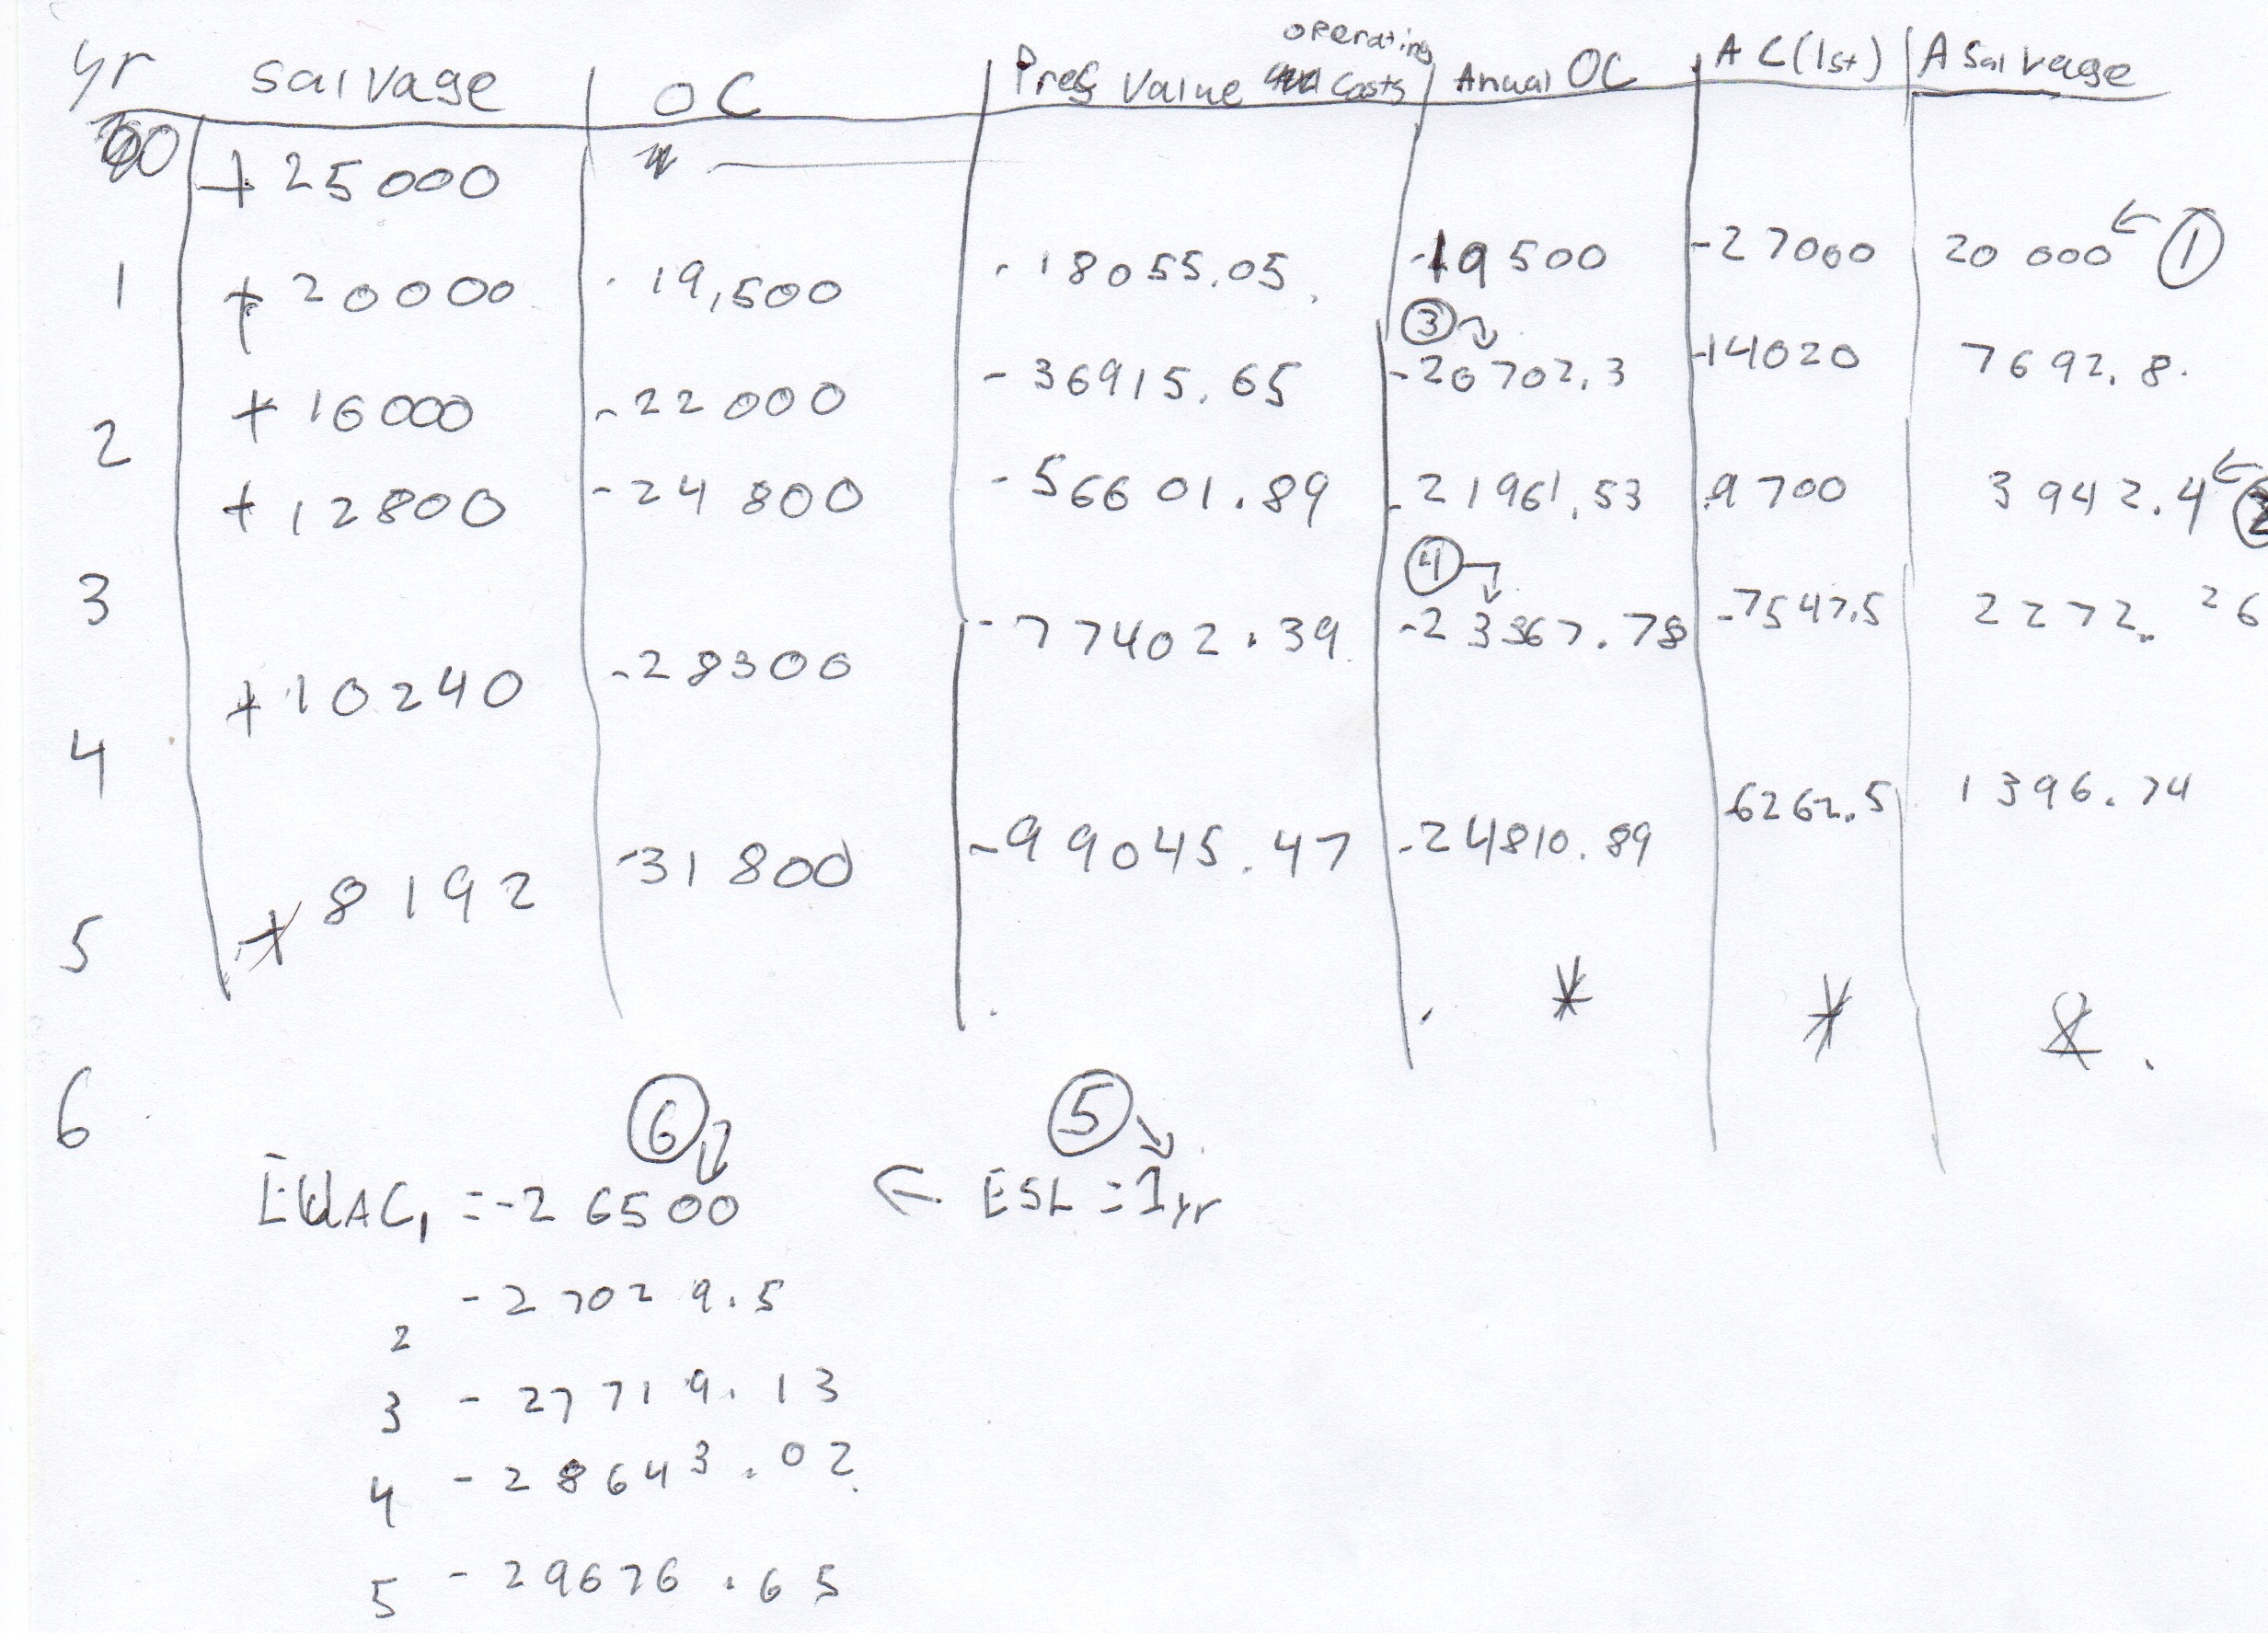 yr salvage OC Pres Value operating Costs Anual OC AC(1st) A Salvage
0 +25000
1 +20000 -19,500 -18055.05 -19500 -27000 20000 ← ①
2 +16000 -22000 -36915.65 ③ -20702.3 -14020 7692.8
3 +12800 -24800 -56601.89 -21961.53 9700 3942.4 ←
4 +10240 -28300 -77402.39 ④ -23367.78 -7547.5 2272.26
5 +8192 -31800 -99045.47 -24810.89 6262.5 1396.74
6 * *
⑥ ⑤
EUAC1 = -26500 ← ESL = 1yr
2 -27029.5
3 -27719.13
4 -28643.02
5 -29676.65